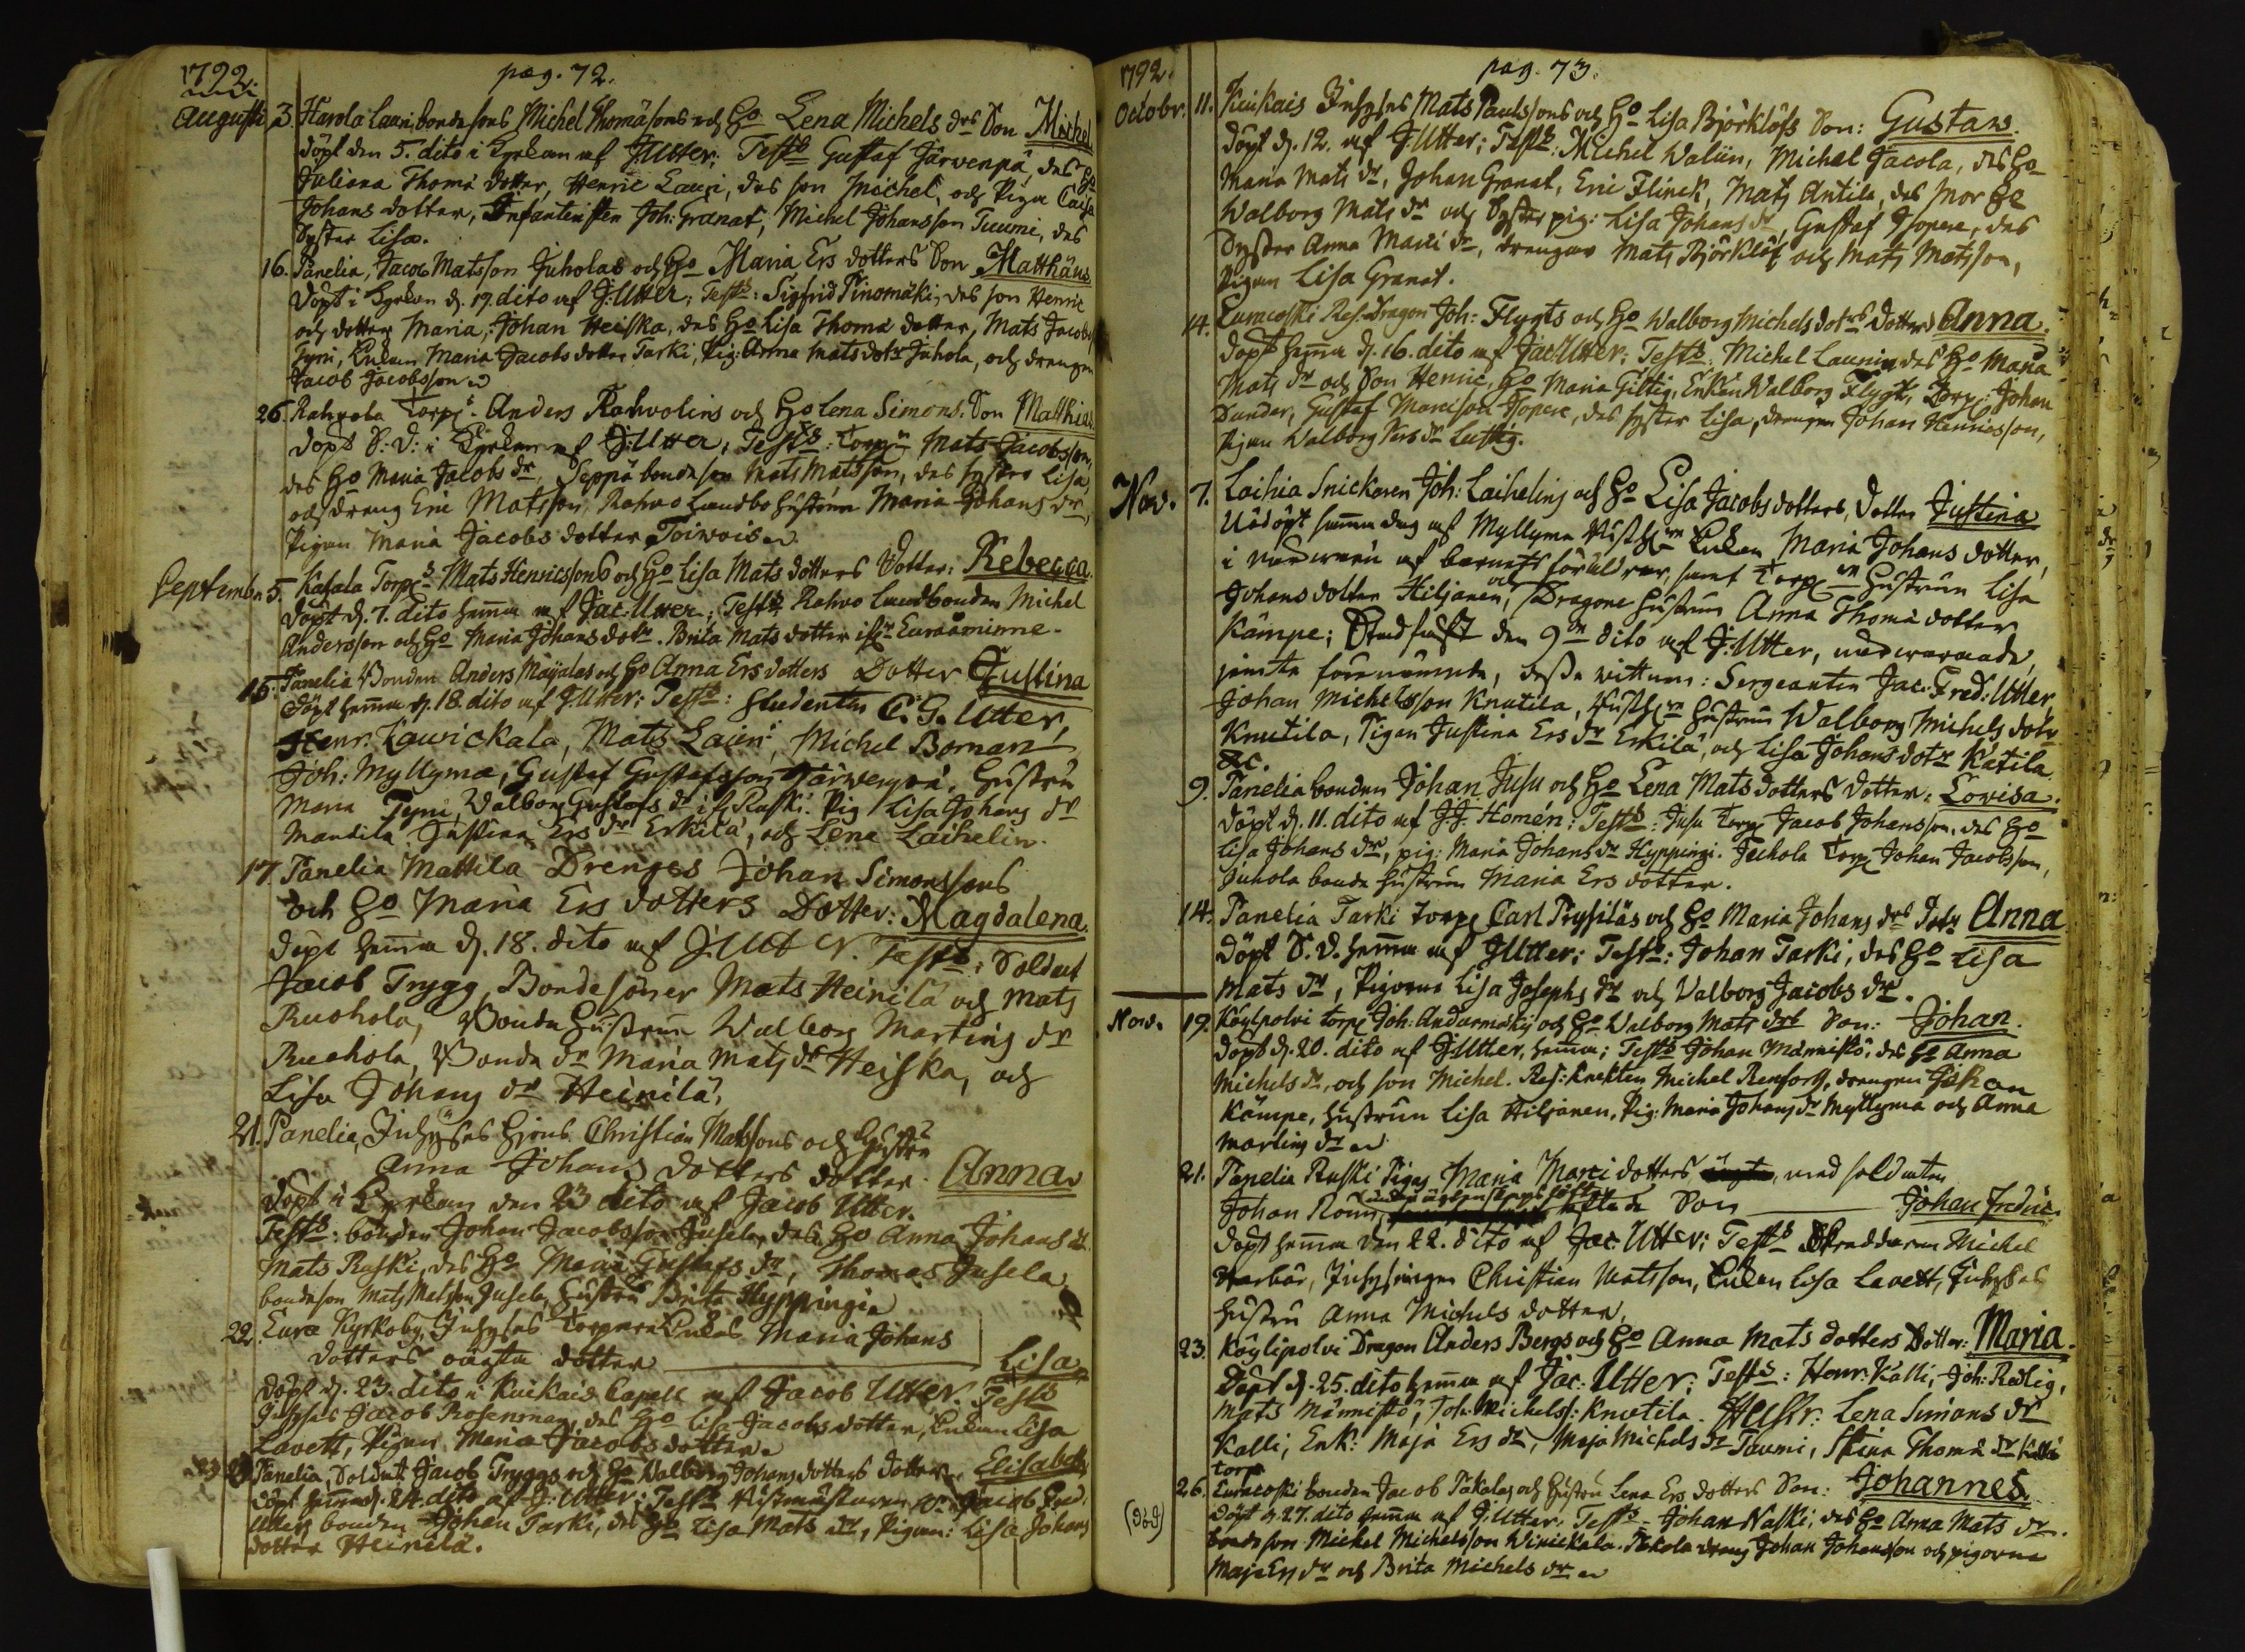 1792.
pag. 72.
Augusti 3. Harola Lauri, bondesons Michel Thomæsons och Ho Lena Michels drs Son Michel
döpt den 5. dito i Kyrkan af J. Utter; Test: Gustaf Järvenpä, des Ho
Juliana Thomæ dotter, Henric Lauri, des son Michel, och Pigan Caisa
Johans dotter, Infanteristen Joh: Granat, Michel Johansson Tuumi, des
Syster Lisa.
16. Panelia, Jacob Matsson Juholas och Ho Maria Ers dotters Son Matthäus
döpt i Kyrkan d. 19. dito af J: Utter; Tests: Sigfrid Pinomäki, des son Henric
och dotter Maria, Johan Heiska, des Ho Lisa Thomæ dotter, Mats Jacobs
Tyni, Enkan Maria Jacobs dotter Tarki, Pig: Anna Mats dotr Juhola, och drengen
Jacob Jacobsson
26. Rahvola Torps. Anders Rahvolins och Ho Lena Simons. Son Matthias
döpt S: D: i Kyrkan af J: Utter; Tests: Torpn Mats Jacobsson,
des Ho Maria Jacobs dr, Seppä bondeson Mats Matsson, des Syster Lisa,
och dreng Eric Matsson, Rahvo Landbo hustrun Maria Johans dr,
Pigan Maria Jacobs dotter Toivois
Septembr. 5. Kahala Torps Mats Henricssons och Ho Lisa Mats dotters dotter: Rebecca.
döpt d. 7. dito hemma af Jac. Utter; Tests Rahvo Landbonden Michel
Andersson och Ho Maria Johans dotr. Brita Mats dotter ifr Euraåminne.
15. Panelia Bonden Anders Mäyalas och Ho Anna Ers dotters Dotter Justina
döpt hemma d. 18. dito af J. Utter; Tests: Studenten C. G. Utter,
Henr. Lawickala, Mats Lauri, Michel Boman,
Joh: Myllyma, Gustaf Gustafsson Järvenpä, hustru
Maria Tyni, Walborg Gustafs dr ifr Ruski. Pig Lisa Johans dr
Mandila, Justina Ers dr Erkilä, och Lena Laihelin.
17. Panelia Mattila Drenges Johan Simonssons
och Ho Maria Ers dotters Dotter: Magdalena.
döpt hemma d. 18. dito af J. Utter. Tests: Soldat
Jacob Trygg, Bondesöner Mats Heinilä och Mats
Ruohola, Bonde hustrun Walborg Martins dr
Ruohola, Bonde dr Maria Mats dr Heiska, och
Lisa Johans dr Heinilä.
21. Panelia, Inhyses Hjons Christian Matssons och Hustru
Anna Johans dotters dotter. Anna
döpt i Kyrkan den 23 dito af Jacob Utter.
Tests: bonden Johan Jacobsson Jusela, des Ho Anna Johans dr
Mats Ruski, des Ho Maria Gustafs dr, Thomas Jusela
bondeson Mats Matsson Jusela, hustru Brita Hyppingin
22. Eura Kyrkoby, Inhyses Torpare Enkas Maria Johans
dotters oägta dotter Lisa
döpt d. 23. dito i Kiukais Capell af Jacob Utter. Tests
Inhyses Jacob Rosenman, des Ho Lisa Jacobs dotter, Enkan Lisa
Lavett, Pigan Maria Jacobs dotter.
23 Panelia, Soldat Jacob Tryggs och Ho Walborg Johans dotters dotter Elisabeth
döpt hemma d. 24. dito af J: Utter; Tests Jacob Fred:
Utter, bonden Johan Tarki, des Ho Lisa Mats dr, Pigan: Lisa Johans
dotter Heinilä.
1792.
pag. 73.
Octobr. 11. Kiukais Inhyses Mats Paulssons och Ho Lisa Björklöfs Son: Gustaw.
döpt d. 12. af J. Utter; Tests: Michel Walin, Michel Jacola, des Ho
Maria Mats dr, Johan Granat, Eric Flinck, Mats Antila, des Mor Ho
Walborg Mats dr och Syster pig: Lisa Johans dr, Gustaf Isopere, des
Syster Anna Marci dr, drengar Mats Björklöf och Mats Matsson,
Pigan Lisa Granat.
14. Euracoski Res: Dragon Joh: Flygts och Ho Walborg Michels dotrs dotter Anna.
döpt hemma d. 16. dito af Jac: Utter; Tests: Michel Launin des Ho Maria
Mats dr och Son Henric, Ho Maria Giltig, Enkan Walborg Flygt, Torp: Johan
Dunder, Gustaf Marcison Isopere, des syster Lisa, drengen Johan Henricsson,
Pigan Walborg Ers dr Lustig.
Nov. 7. Laihia Snickaren Joh: Laihelins och Ho Lisa Jacobs dotters, dotter Justina
Nödöpt samma dag af Myllyma Enkan Maria Johans dotter,
i närwaru af barnets föräldrar, samt Torp hustrun Lisa
Johans dotter Hiljanen, och Dragone hustrun Anna Thomæ dotter
Kämpe; Stadfäst den 9de dito af J: Utter, närwarande
jemte förenämnde, desse wittnen: Sergeanten Jac: Fred: Utter,
Johan Michelsson Knutila, hustrun Walborg Michels dotr
Knutila, Pigan Justina Ers dr Erkilä, och Lisa Johans dotr Katila
&c.
9. Panelia bonden Johan Jusu och Ho Lena Mats dotters dotter: Lovisa.
döpt d. 11. dito af J. J. Homén; Tests: Jusu Torp Jacob Johansson, des Ho
Lisa Johans dr, pig: Maria Johans dr Hyppingi. Juhola Torp Johan Jacobsson,
Juhola bonde hustrun Maria Ers dotter.
14. Panelia Tarki Torp Carl Prysiläs och Ho Maria Johans drs dotr Anna
döpt S. D. hemma af J Utter; Tests: Johan Tarki, des Ho Lisa
Mats dr, Pigorna Lisa Josephs dr och Walborg Jacobs dr.
Nov. 19. Köylpolvi torp Joh: Andarmäkij och Ho Walborg Mats drs Son: Johan.
döpt d. 20. dito af J: Utter, hemma; Tests Johan Männistö, des Ho Anna
Michels dr, och son Michel. Res: Knekten Michel Renfors, drengen Johan
Kämpe, hustrun Lisa Hiljanen, Pig: Maria Johans dr Myllyma och Anna
Martins dr
21. Panelia Ruski Pigas Maria Marci dotters med soldaten
Johan Rönn, under ägtenskaps löfte Son Johan Fredric.
döpt hemma den 22. dito af Jac. Utter; Tests Skreddaren Michel
Starbär, Inhysingen Christian Matsson, Enkan Lisa Lavett, Inhyses
hustru Anna Michels dotter.
23. Köylipolvi Dragon Anders Bergs och Ho Anna Mats dotters Dotter: Maria.
Döpt d. 25. dito hemma af Jac: Utter; Tests: Henr: Kalli, Joh: Redlig,
Mats Männistö, Joh: Michels: Knutila. Hustr: Lena Simons dr
Kalli, Enk: Maja Ers dr, Maja Michels dr Tuumi, Stina Thomæ dr Kalli
torp
26. Euracoski bonden Jacob Takalas och Hustru Lena Ers dotters Son: Johannes.
döpt d. 27. dito hemma af J. Utter. Tests Johan Naski, des Ho Anna Mats dr.
bondeson Michel Michelsson Winickala. Takola dreng Johan Johansson och pigorna
Maja Ers dr och Brita Michels dr